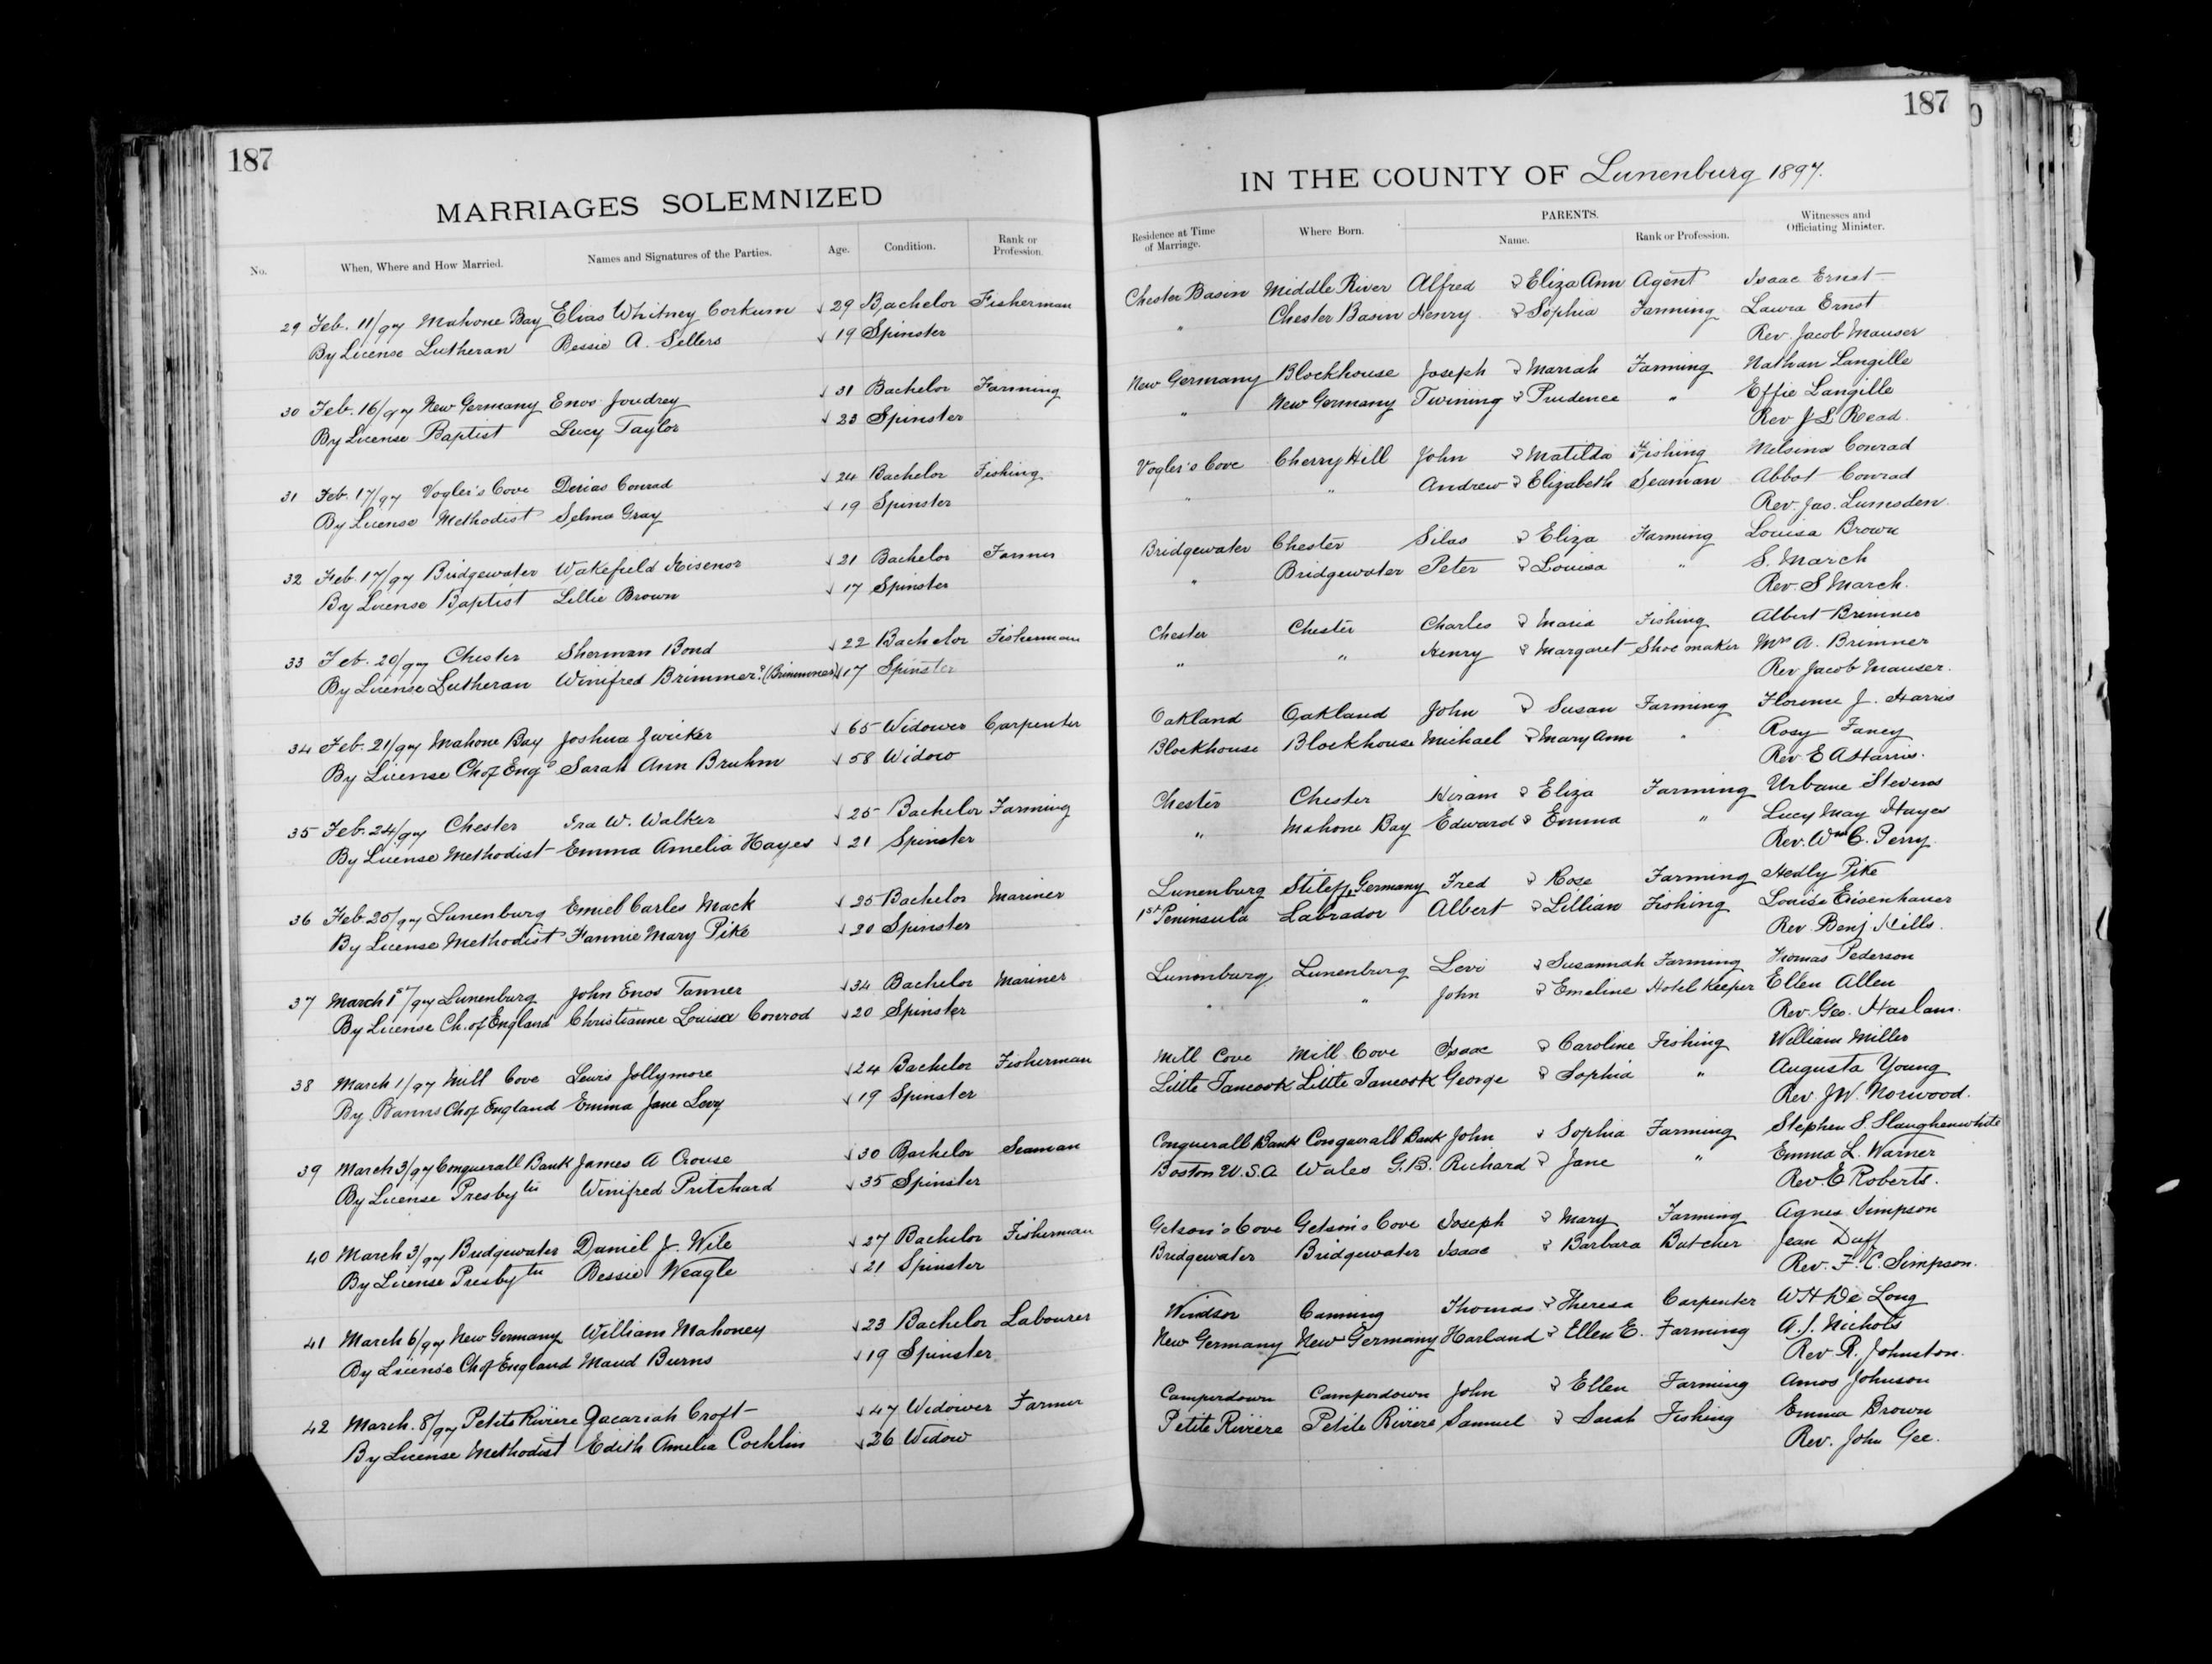 187
MARRIAGES SOLEMNIZED
No. When, Where and How Married. Names and Signatures of the Parties. Age. Condition. Rank or Profession.
29 Feb. 11/97 Mahone Bay Elias Whitney Corkum 29 Bachelor Fisherman
By License Lutheran Bessie A. Sellers 19 Spinster
30 Feb. 16/97 New Germany Enos Joudrey 31 Bachelor Farming
By License Baptist Lucy Taylor 23 Spinster
31 Feb. 17/97 Vogler's Cove Desias Conrad 24 Bachelor Fishing
By License Methodist Selma Gray 19 Spinster
32 Feb. 17/97 Bridgewater Wakefield Hisenor 21 Bachelor Farmer
By License Baptist Lillie Brown 17 Spinster
33 Feb. 20/97 Chester Sherman Bond 22 Bachelor Fisherman
By License Lutheran Winifred Brimmer? (Brimmner) 17 Spinster
34 Feb. 21/97 Mahone Bay Joshua Zwicker 65 Widower Carpenter
By License Ch of Engd Sarah Ann Bruhm 58 Widow
35 Feb. 24/97 Chester Ira W. Walker 25 Bachelor Farming
By License Methodist Emma Amelia Hayes 21 Spinster
36 Feb. 25/97 Lunenburg Emiel Carles Mack 25 Bachelor Mariner
By License Methodist Fannie Mary Pike 20 Spinster
37 March 1st/97 Lunenburg John Enos Tanner 34 Bachelor Mariner
By License Ch. of England Christianne Louisa Conrod 20 Spinster
38 March 1/97 Mill Cove Lewis Jollymore 24 Bachelor Fisherman
By Banns Ch of England Emma Jane Levy 19 Spinster
39 March 3/97 Conquerall Bank James A Crouse 30 Bachelor Seaman
By License Presbytn Winifred Pritchard 35 Spinster
40 March 3/97 Bridgewater Daniel J. Wile 27 Bachelor Fisherman
By License Presbytn Bessie Weagle 21 Spinster
41 March 6/97 New Germany William Mahoney 23 Bachelor Labourer
By License Ch of England Maud Burns 19 Spinster
42 March. 8/97 Petite Riviere Zacariah Croft 47 Widower Farmer
By License Methodist Edith Amelia Cochlin 26 Widow
187
IN THE COUNTY OF Lunenburg 1897.
Residence at Time of Marriage. Where Born. PARENTS. Name. Rank or Profession. Witnesses and Officiating Minister.
Chester Basin Middle River Alfred & Eliza Ann Agent Isaac Ernst
" Chester Basin Henry & Sophia Farming Laura Ernst
Rev. Jacob Mauser
New Germany Blockhouse Joseph & Mariah Farming Nathan Langille
" New Germany Twining & Prudence " Effie Langille
Rev J L Read.
Vogler's Cove Cherry Hill John & Matilda Fishing Melsina Conrad
" " Andrew & Elizabeth Seaman Abbot Conrad
Rev. Jas. Lumsden.
Bridgewater Chester Silas & Eliza Farming Louisa Brown
" Bridgewater Peter & Louisa " S. March
Rev. S March.
Chester Chester Charles & Maria Fishing Albert Brimner
" " Henry & Margaret Shoemaker Mrs A. Brimner
Rev Jacob Mauser.
Oakland Oakland John & Susan Farming Florence J. Harris
Blockhouse Blockhouse Michael & Mary Ann " Rosy Fancy
Rev. E A Harris.
Chester Chester Hiram & Eliza Farming Urbane Stevens
" Mahone Bay Edward & Emma " Lucy May Hayes
Rev. Wm C. Perry.
Lunenburg Germany Fred & Rose Farming Hedly Pike
1st Peninsula Labrador Albert & Lillian Fishing Louise Eisenhauer
Rev. Benj Hills.
Lunenburg Lunenburg Levi & Susannah Farming Thomas Pederson
" " John & Emeline Hotel Keeper Ellen Allen
Rev. Geo. Haslam.
Mill Cove Mill Cove Isaac & Caroline Fishing William Miller
Little Tancook Little Tancook George & Sophia " Augusta Young
Rev. J W. Norwood.
Conquerall Bank Conquerall Bank John & Sophia Farming Stephen S. Slaughenwhite
Boston U.S.A Wales G.B. Richard & Jane " Emma L. Warner
Rev. E Roberts.
Getson's Cove Getson's Cove Joseph & Mary Farming Agnes Simpson
Bridgewater Bridgewater Isaac & Barbara Butcher Jean Duff
Rev. F. C. Simpson.
Windsor Canning Thomas & Theresa Carpenter W H De Long
New Germany New Germany Harland & Ellen E. Farming A. J. Nichols
Rev. R. Johnston.
Camperdown Camperdown John & Ellen Farming Amos Johnson
Petite Riviere Petite Riviere Samuel & Sarah Fishing Emma Brown
Rev. John Gee.